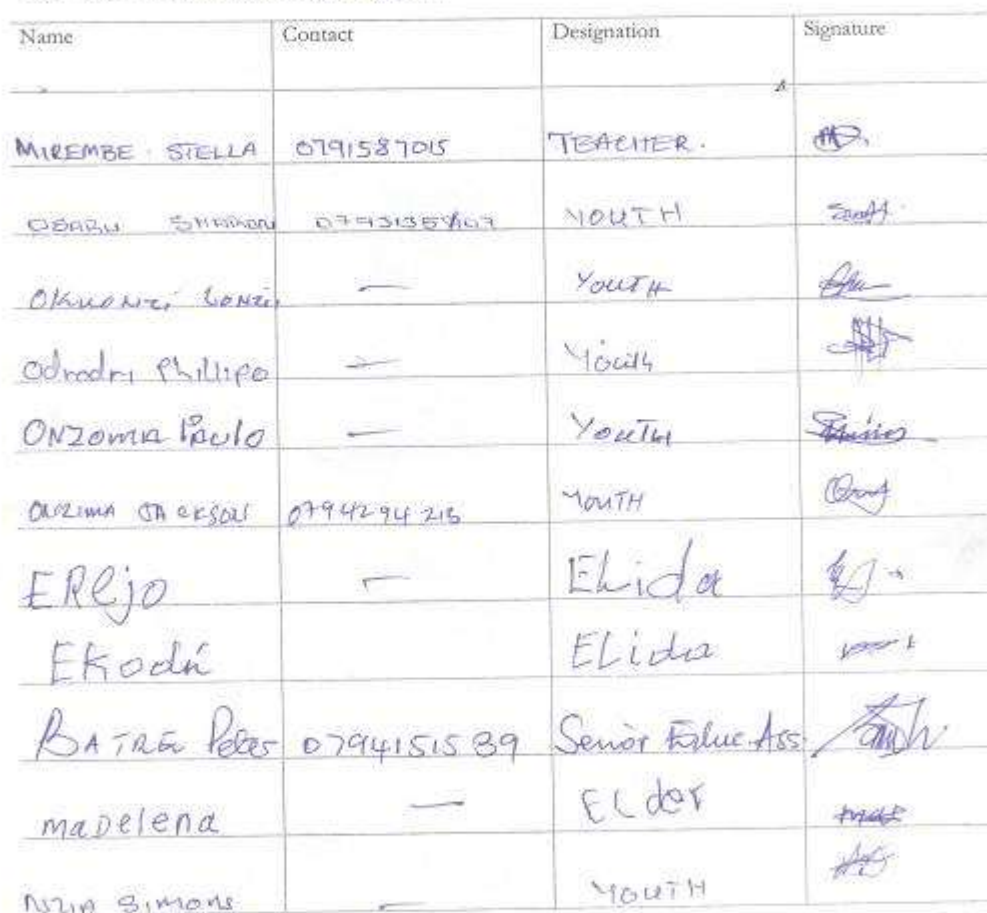 Name Contact Designation Signature
MIREMBE STELLA 0791587015 TEACHER.
OBARU YOUTH
OKUONZI LONZI — YOUTH
Odrodri Phillipo — Youth
ONZOMA Paulo — YOUTH
ONZIMA JACKSON 0794294215 YOUTH
EREjo — ELida
EKodri ELida
BATRE Peter 0794151539 Senior Educ. Ass.
maDelena — ELder
NZIA SIMONS — YOUTH